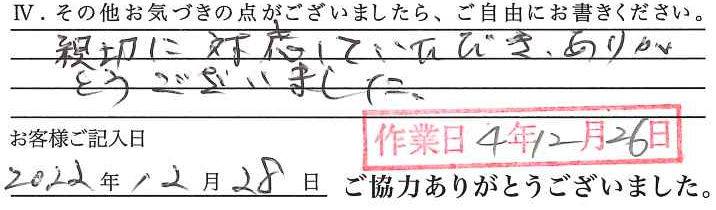 Ⅳ．その他お気づきの点がございましたら、ご自由にお書きください。
親切に対応していただき、ありが
とうございました。
お客様ご記入日
作業日 4年12月26日
2022年12月28日
ご協力ありがとうございました。